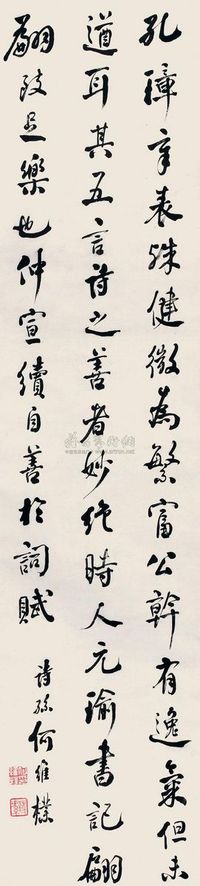 孔璋章表殊健微為繁富公幹有逸氣但未
遒耳其五言詩之善者妙絕時人元瑜書記翩
翩致足樂也仲宣續自善於詞賦
詩孫何維樸